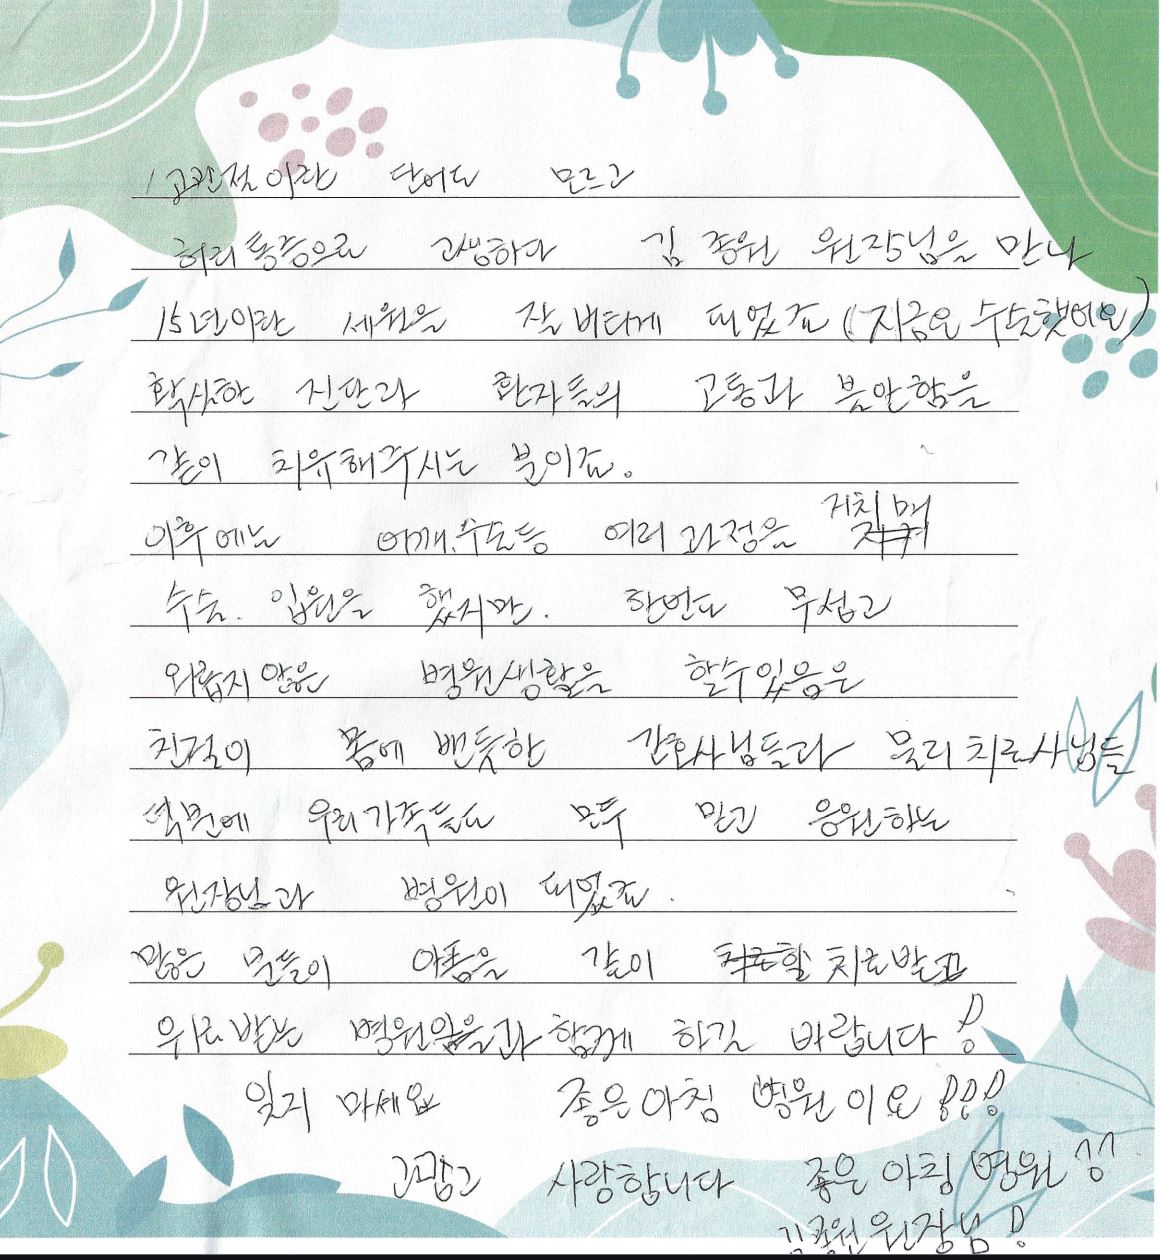 고관절이란 단어도 모르고
허리통증으로 고생하다 김종원 원장님을 만나
15년이란 세월을 잘 버티게 되었죠 (지금은 수술했어요)
확실한 진단과 환자들의 고통과 불안함을
같이 치유해주시는 분이죠.
이후에는 어깨.수술등 여러 과정을 거치며
수술. 입원을 했지만. 한번도 무섭고
외롭지 않은 병원생활을 할수있음은
친절이 몸에 밴듯한 간호사님들과 물리치료사님들
덕분에 우리가족들도 모두 믿고 응원하는
원장님과 병원이 되었죠.
많은 분들이 아픔을 같이 치료받고
위로받는 병원 함께 하길 바랍니다!
잊지 마세요 좋은아침 병원이요!!!
고맙고 사랑합니다 좋은아침병원^^
김종원 원장님!